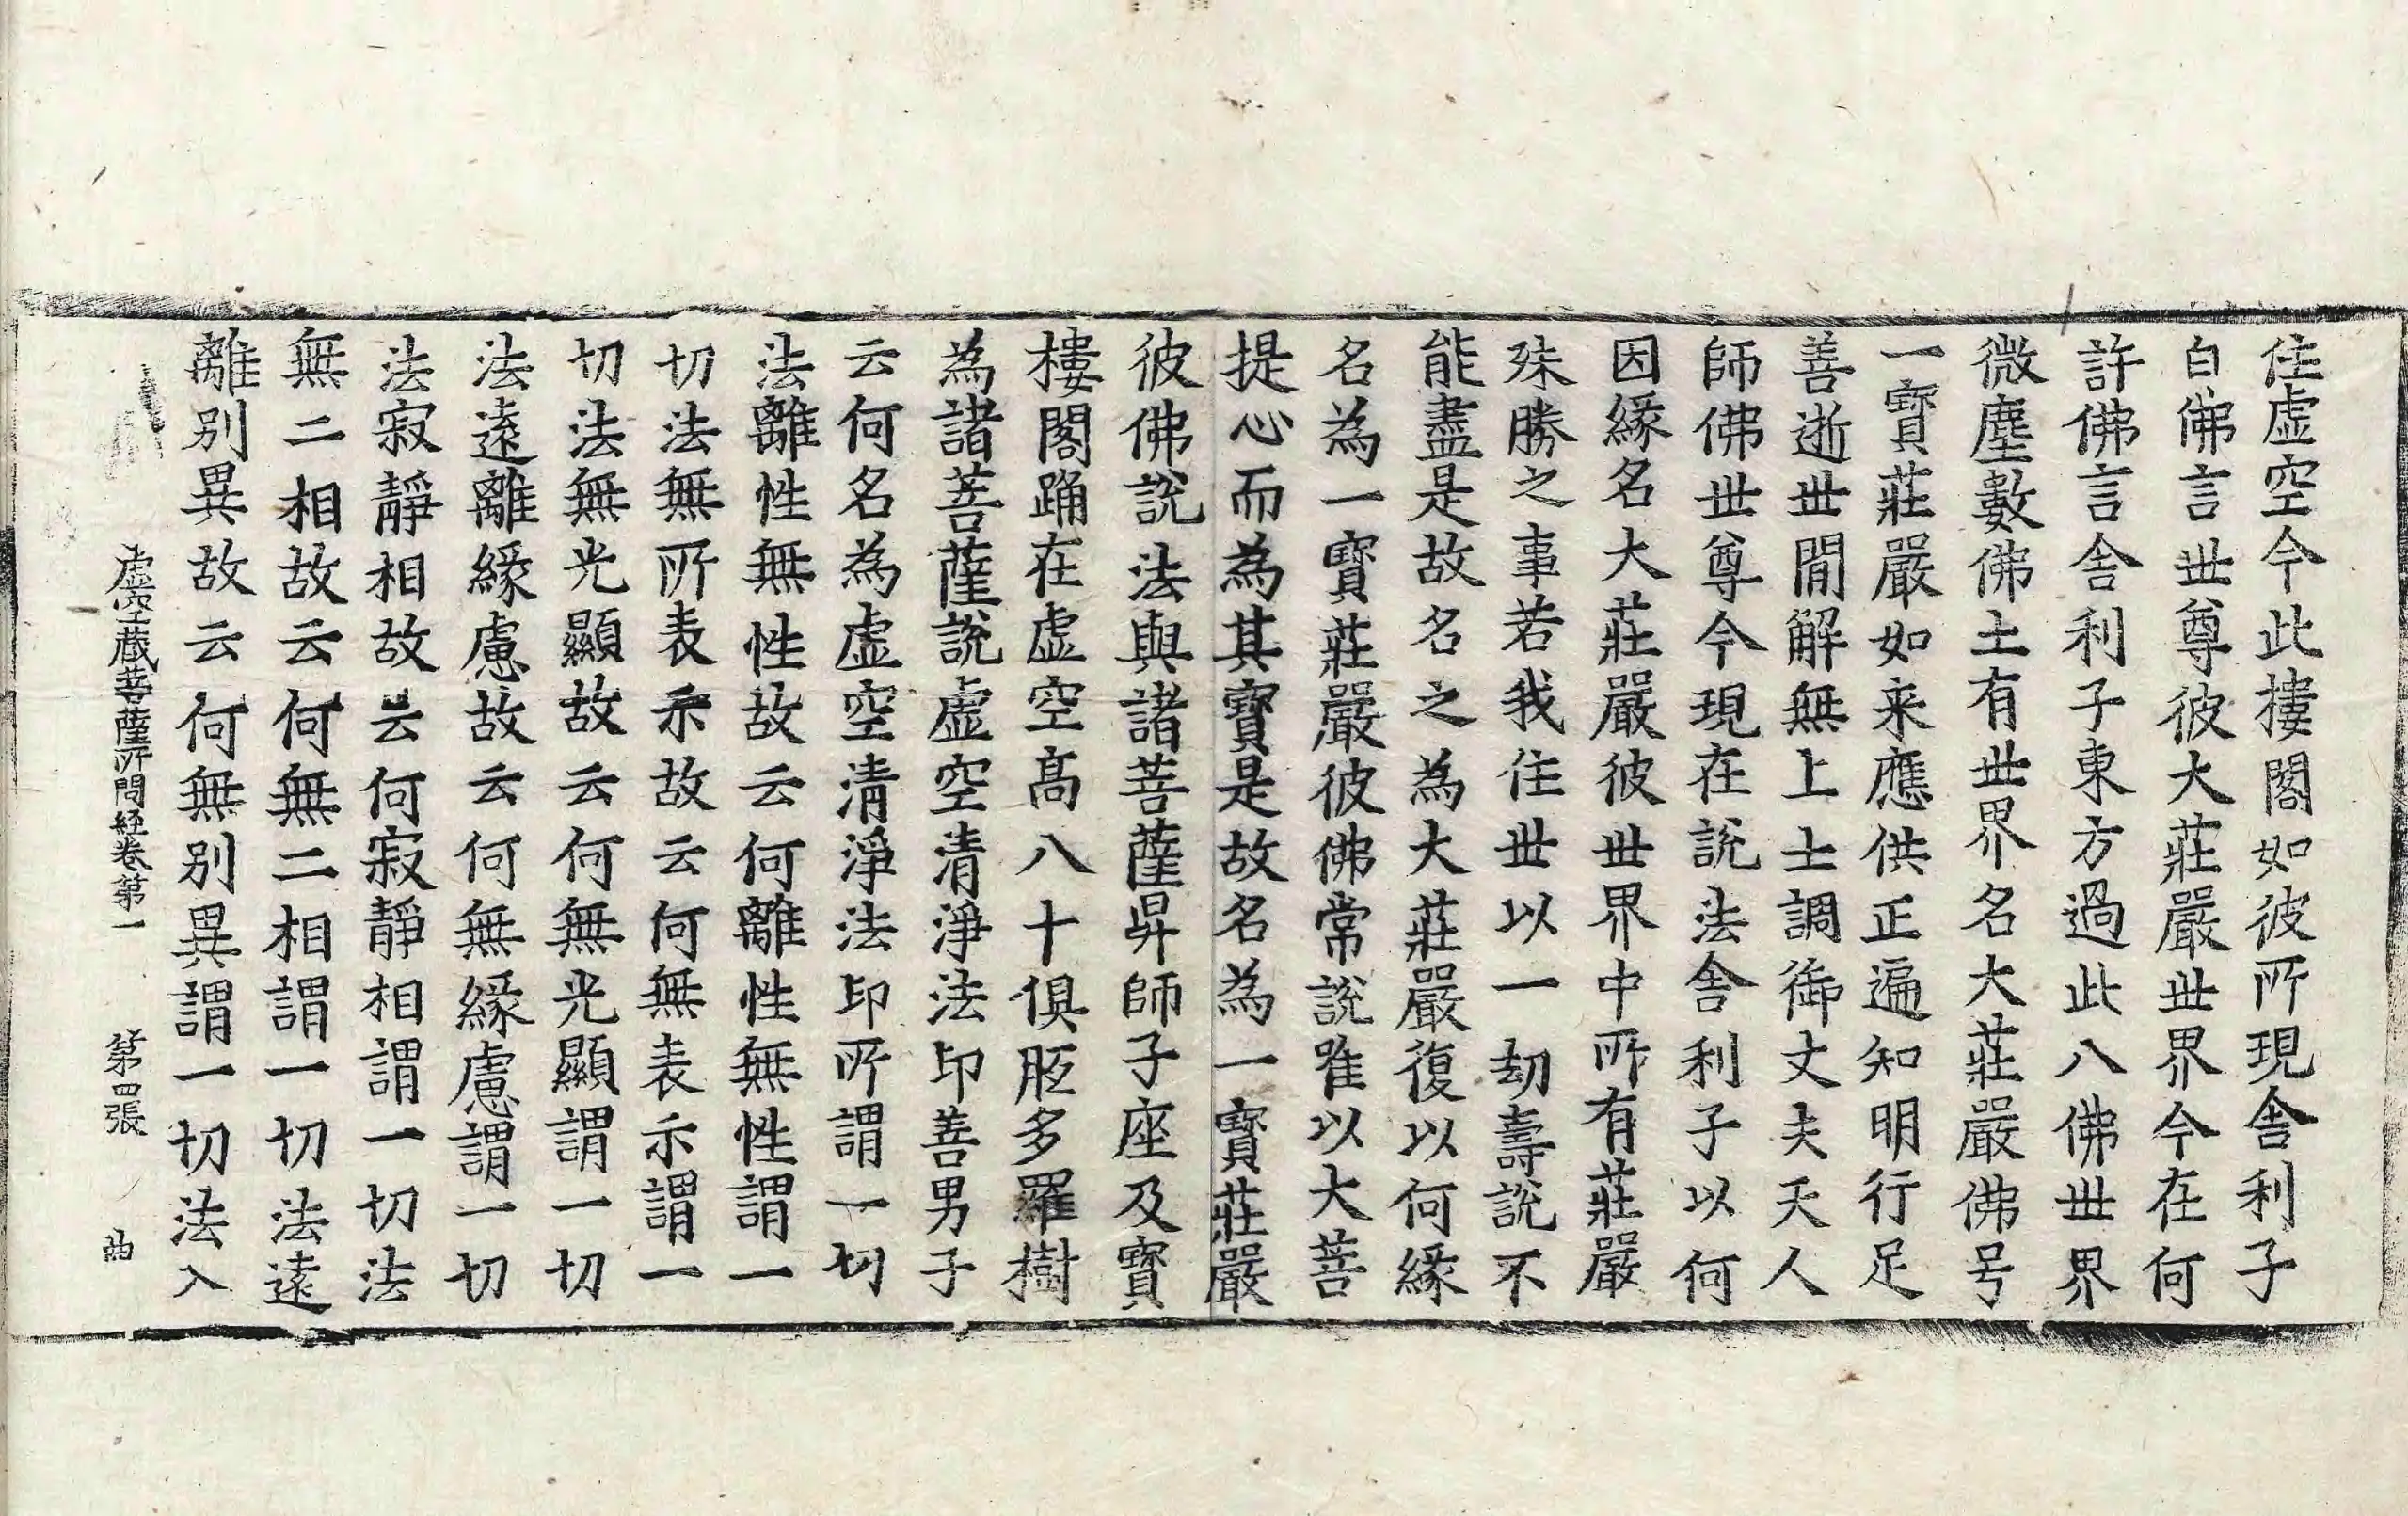 住虛空今此樓閣如彼所現舍利子
白佛言世尊彼大莊嚴世界今在何
許佛言舍利子東方過此八佛世界
微塵數佛土有世界名大莊嚴佛号
一寶莊嚴如来應供正遍知明行足
善逝世間解無上士調御丈夫天人
師佛世尊今現在說法舍利子以何
因緣名大莊嚴彼世界中所有莊嚴
殊勝之事若我住世以一劫壽說不
能盡是故名之為大莊嚴復以何緣
名為一寶莊嚴彼佛常說唯以大菩
提心而為其寶是故名為一寶莊嚴
彼佛說法與諸菩薩昇師子座及寶
樓閣踊在虛空髙八十俱胝多羅樹
為諸菩薩說虛空清淨法印善男子
云何名為虛空清淨法印所謂一切
法離性無性故云何離性無性謂一
切法無所表示故云何無表示謂一
切法無光顯故云何無光顯謂一切
法遠離緣慮故云何無緣慮謂一切
法寂靜相故云何寂靜相謂一切法
無二相故云何無二相謂一切法遠
離別異故云何無別異謂一切法入
虛空蔵菩薩所問経卷第一 第四張 曲